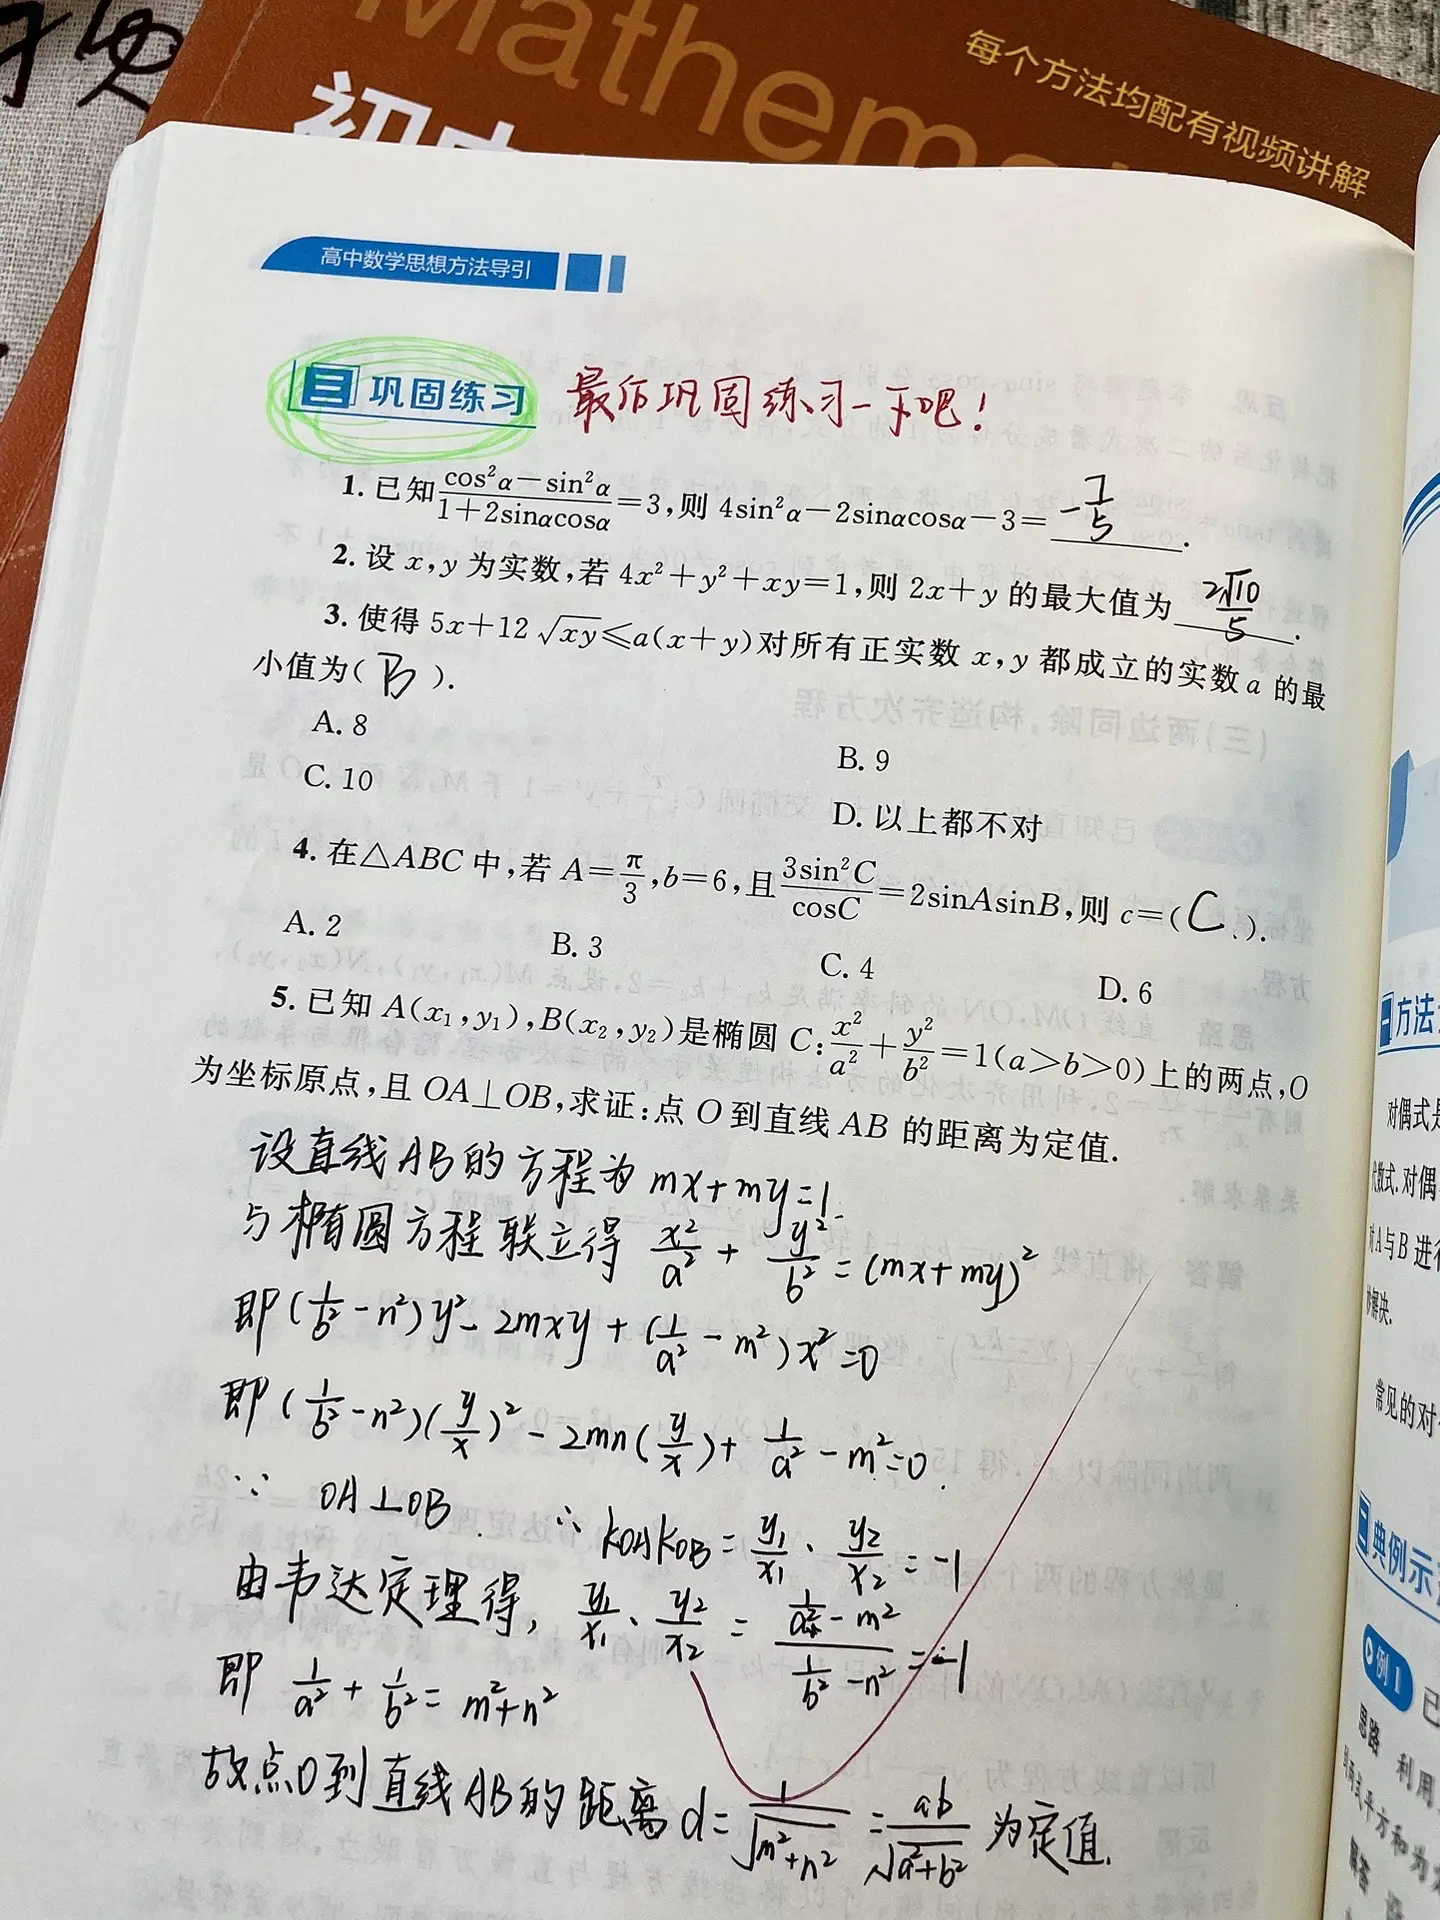 换
Mathema
初中
每个方法均配有视频讲解
高中数学思想方法导引
三 巩固练习 最后巩固练习一下吧！
1. 已知$\frac{\cos^2α-\sin^2α}{1+2\sinα\cosα}$=3,则 4sin²α-2sinαcosα-3= $-\frac{7}{5}$ .
2. 设 x,y 为实数,若 4x²+y²+xy=1,则 2x+y 的最大值为 $\frac{2\sqrt{10}}{5}$ .
3. 使得 5x+12$\sqrt{xy}$≤a(x+y)对所有正实数 x,y 都成立的实数 a 的最
小值为( B ).
A. 8
B. 9
C. 10
D. 以上都不对
4. 在△ABC 中,若 A=$\frac{π}{3}$,b=6,且$\frac{3\sin^2C}{\cos C}$=2sinAsinB,则 c=( C ).
A. 2 B. 3 C. 4 D. 6
5. 已知 A(x₁,y₁),B(x₂,y₂)是椭圆 C:$\frac{x^2}{a^2}+\frac{y^2}{b^2}$=1(a>b>0)上的两点,O
为坐标原点,且 OA⊥OB,求证:点 O 到直线 AB 的距离为定值.
设直线AB的方程为 mx+my=1.
与椭圆方程联立得 $\frac{x^2}{a^2}+\frac{y^2}{b^2}$=(mx+my)²
即($\frac{1}{b^2}$-n²)y²-2mxy+($\frac{1}{a^2}$-m²)x²=0
即($\frac{1}{b^2}$-n²)($\frac{y}{x}$)²-2mn($\frac{y}{x}$)+$\frac{1}{a^2}$-m²=0.
∵ OA⊥OB. ∴ kOAkOB=$\frac{y_1}{x_1}$·$\frac{y_2}{x_2}$=-1
由韦达定理得, $\frac{y_1}{x_1}$·$\frac{y_2}{x_2}$=$\frac{\frac{1}{a^2}-m^2}{\frac{1}{b^2}-n^2}$=-1
即 $\frac{1}{a^2}+\frac{1}{b^2}$=m²+n²
故点O到直线AB的距离d=$\frac{1}{\sqrt{m^2+n^2}}$=$\frac{ab}{\sqrt{a^2+b^2}}$ 为定值.
一 方法
对偶式是
代数式.对偶
对A与B 进行
妙解决.
常见的对
二 典例示
例 1 已
思路 利用
解答